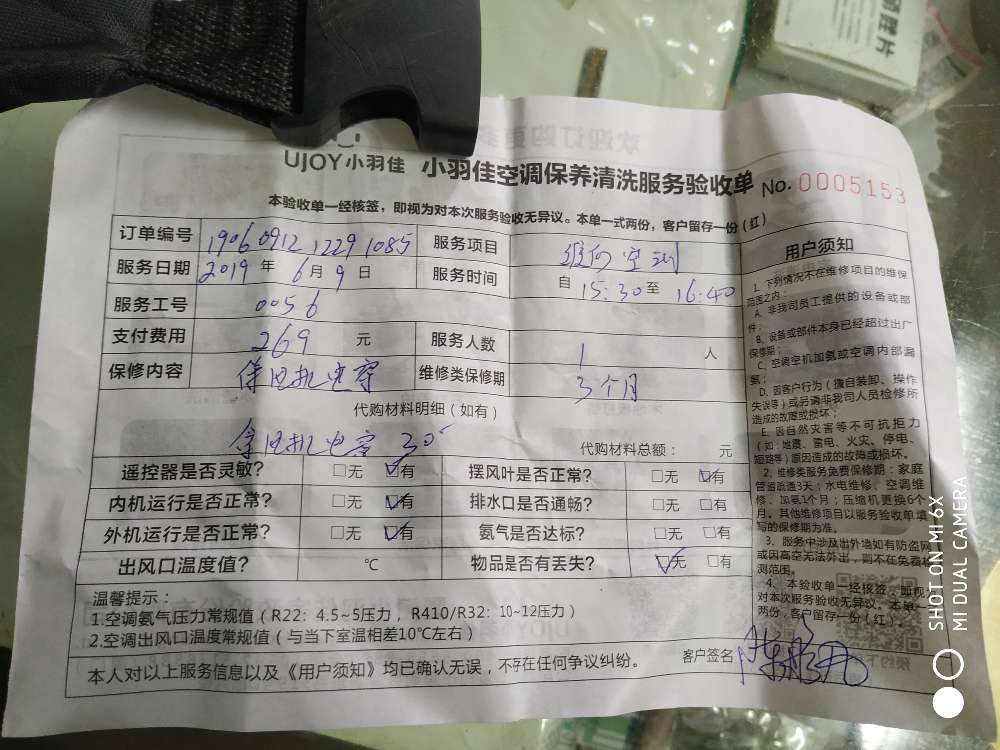 UJOY小羽佳 小羽佳空调保养清洗服务验收单 No. 0005153
本验收单一经核签，即视为对本次服务验收无异议。本单一式两份，客户留存一份（红）
订单编号 1906 0912 1229 1085 服务项目 维修空调
服务日期 2019 年 6 月 9 日 服务时间 自 15:30 至 16:40
服务工号 0056
支付费用 269 元 服务人数 1 人
保修内容 电容 维修类保修期 3个月
代购材料明细（如有）
电容 30 代购材料总额： 元
遥控器是否灵敏？ □无 □有 摆风叶是否正常？ □无 □有
内机运行是否正常？ □无 □有 排水口是否通畅？ □无 □有
外机运行是否正常？ □无 □有 氨气是否达标？ □无 □有
出风口温度值？ ℃ 物品是否有丢失？ □无 □有
温馨提示：
1.空调氨气压力常规值（R22：4.5~5压力，R410/R32：10~12压力）
2.空调出风口温度常规值（与当下室温相差10℃左右）
本人对以上服务信息以及《用户须知》均已确认无误，不存在任何争议纠纷。 客户签名
用户须知
1. 下列情况不在维修项目的维保
范围之内：
A. 非我司员工提供的设备或部
件；
B. 设备或部件本身已经超过出厂
保修期；
C. 空调空机加氨或空调内部漏
氨；
D. 因客户行为（擅自装卸、操作
失误等）或另请非我司人员检修所
造成的故障或损坏；
E. 因自然灾害等不可抗拒力
（如:地震、雷电、火灾、停电、
短路等）原因造成的故障或损坏。
2. 维修类服务免费保修期：家庭
管道疏通3天；水电维修、空调维
修、加氨1个月；压缩机更换6个
月。其他维修项目以服务验收单填
写的保修期为准。
3. 服务中涉及出外墙如有防盗网
或因高空无法外出，则不在免费检
测范围。
4. 本验收单一经核签，即视为
对本次服务验收无异议。本单一式
两份，客户留存一份（红）。
SHOT ON MI 6X
MI DUAL CAMERA